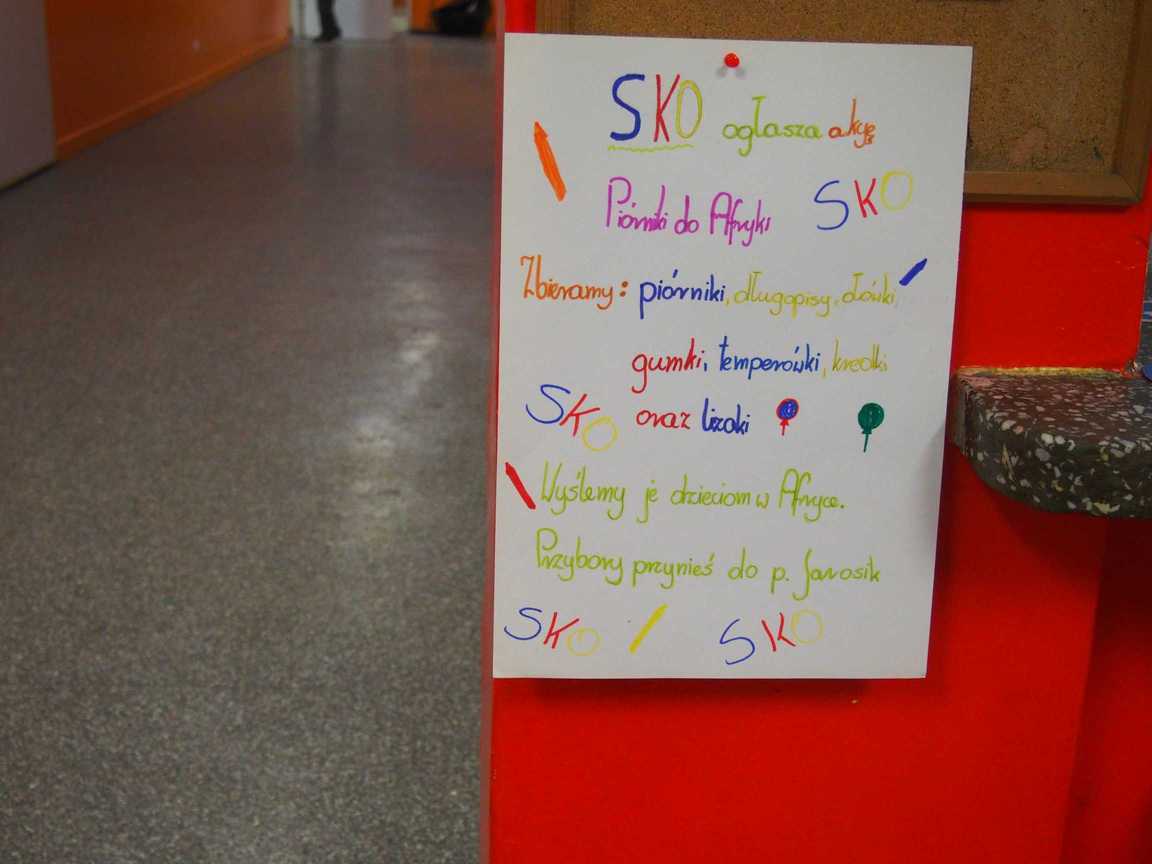 SKO ogłasza akcję
Piórniki do Afryki SKO
Zbieramy: piórniki, długopisy, ołówki,
gumki, temperówki, kredki
SKO oraz lizaki
Wyślemy je dzieciom w Afryce.
Przybory przynieś do p. Jarosik
SKO SKO